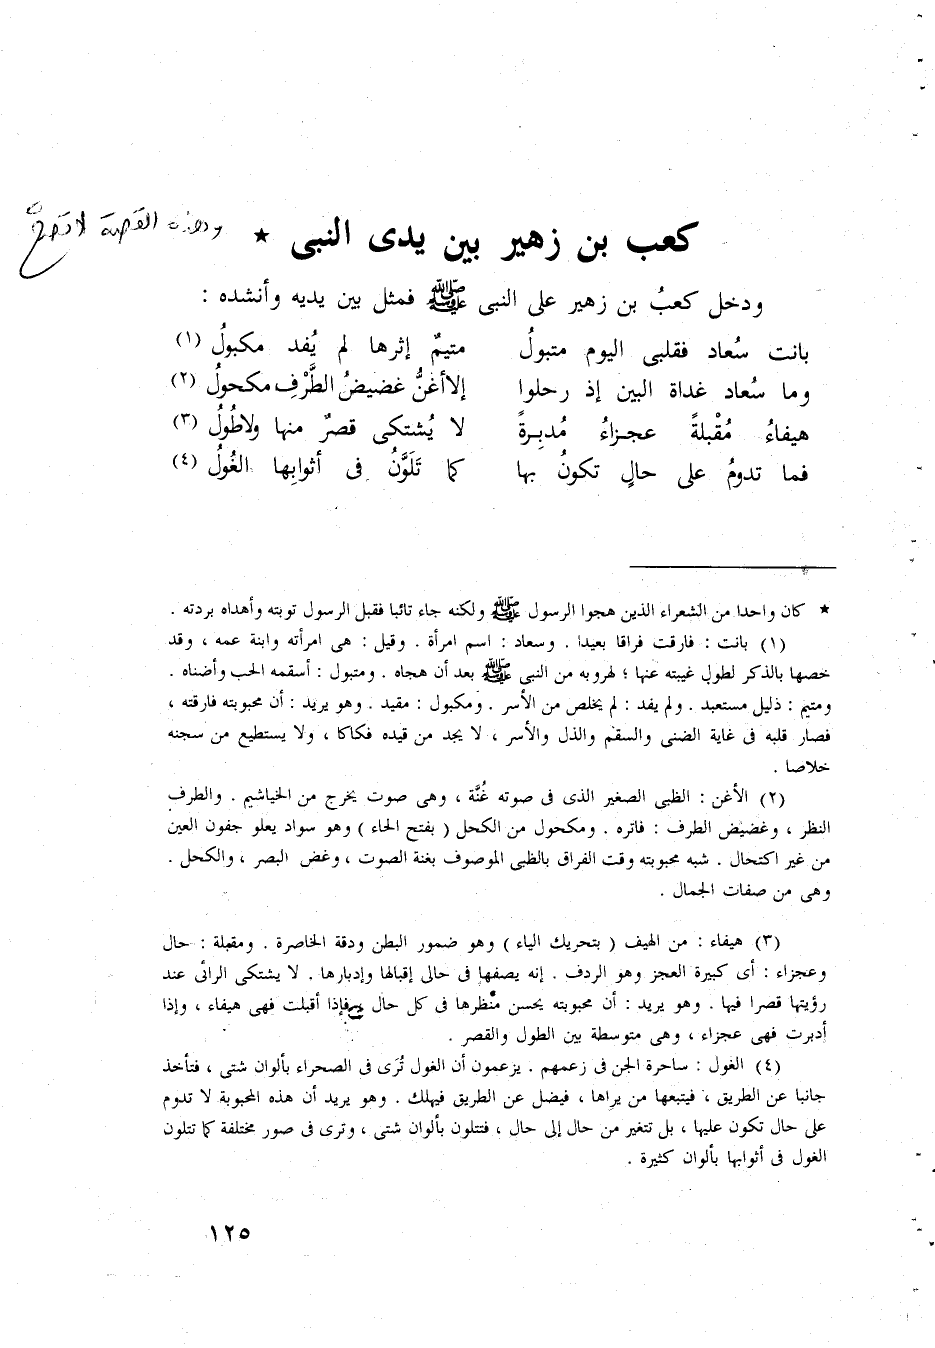 كعب بن زهير بين يدى النبى ★ وهذه القصة لا تصح
ودخل كعبُ بن زهير على النبى ﷺ فمثل بين يديه وأنشده :
بانت سُعاد فقلبى اليوم متبولُ متيمٌ إثرها لم يُفد مكبولُ (١)
وما سُعاد غداة البين إذ رحلوا إلا أغنُّ غضيضُ الطَّرْفِ مكحولُ (٢)
هيفاءُ مُقْبلةً عجزاءُ مُدبِرةً لا يُشتكى قصرٌ منها ولا طُولُ (٣)
فما تدومُ على حالٍ تكونُ بها كما تَلَوَّنُ فى أثوابِها الغُولُ (٤)
★ كان واحدا من الشعراء الذين هجوا الرسول ﷺ ولكنه جاء تائبا فقبل الرسول توبته وأهداه بردته .
(١) بانت : فارقت فراقا بعيدا . وسعاد : اسم امرأة . وقيل : هى امرأته وابنة عمه ، وقد
خصها بالذكر لطول غيبته عنها ؛ لهروبه من النبى ﷺ بعد أن هجاه . ومتبول : أسقمه الحب وأضناه .
ومتيم : ذليل مستعبد . ولم يفد : لم يخلص من الأسر . ومكبول : مقيد . وهو يريد : أن محبوبته فارقته ،
فصار قلبه فى غاية الضنى والسقم والذل والأسر ، لا يجد من قيده فكاكا ، ولا يستطيع من سجنه
خلاصا .
(٢) الأغن : الظبى الصغير الذى فى صوته غُنَّة ، وهى صوت يخرج من الخياشيم . والطرف
النظر ، وغضيض الطرف : فاتره . ومكحول من الكحل ( بفتح الحاء ) وهو سواد يعلو جفون العين
من غير اكتحال . شبه محبوبته وقت الفراق بالظبى الموصوف بغنة الصوت ، وغض البصر ، والكحل .
وهى من صفات الجمال .
(٣) هيفاء : من الهيف ( بتحريك الياء ) وهو ضمور البطن ودقة الخاصرة . ومقبلة : حال
وعجزاء : أى كبيرة العجز وهو الردف . إنه يصفها فى حالى إقبالها وإدبارها . لا يشتكى الرائى عند
رؤيتها قصرا فيها . وهو يريد : أن محبوبته يحسن منظرها فى كل حال فإذا أقبلت فهى هيفاء ، وإذا
أدبرت فهى عجزاء ، وهى متوسطة بين الطول والقصر .
(٤) الغول : ساحرة الجن فى زعمهم . يزعمون أن الغول تُرَى فى الصحراء بألوان شتى ، فتأخذ
جانبا عن الطريق ، فيتبعها من يراها ، فيضل عن الطريق فيهلك . وهو يريد أن هذه المحبوبة لا تدوم
على حال تكون عليها ، بل تتغير من حال إلى حال ، فتتلون بألوان شتى ، وترى فى صور مختلفة كما تتلون
الغول فى أثوابها بألوان كثيرة .
١٢٥